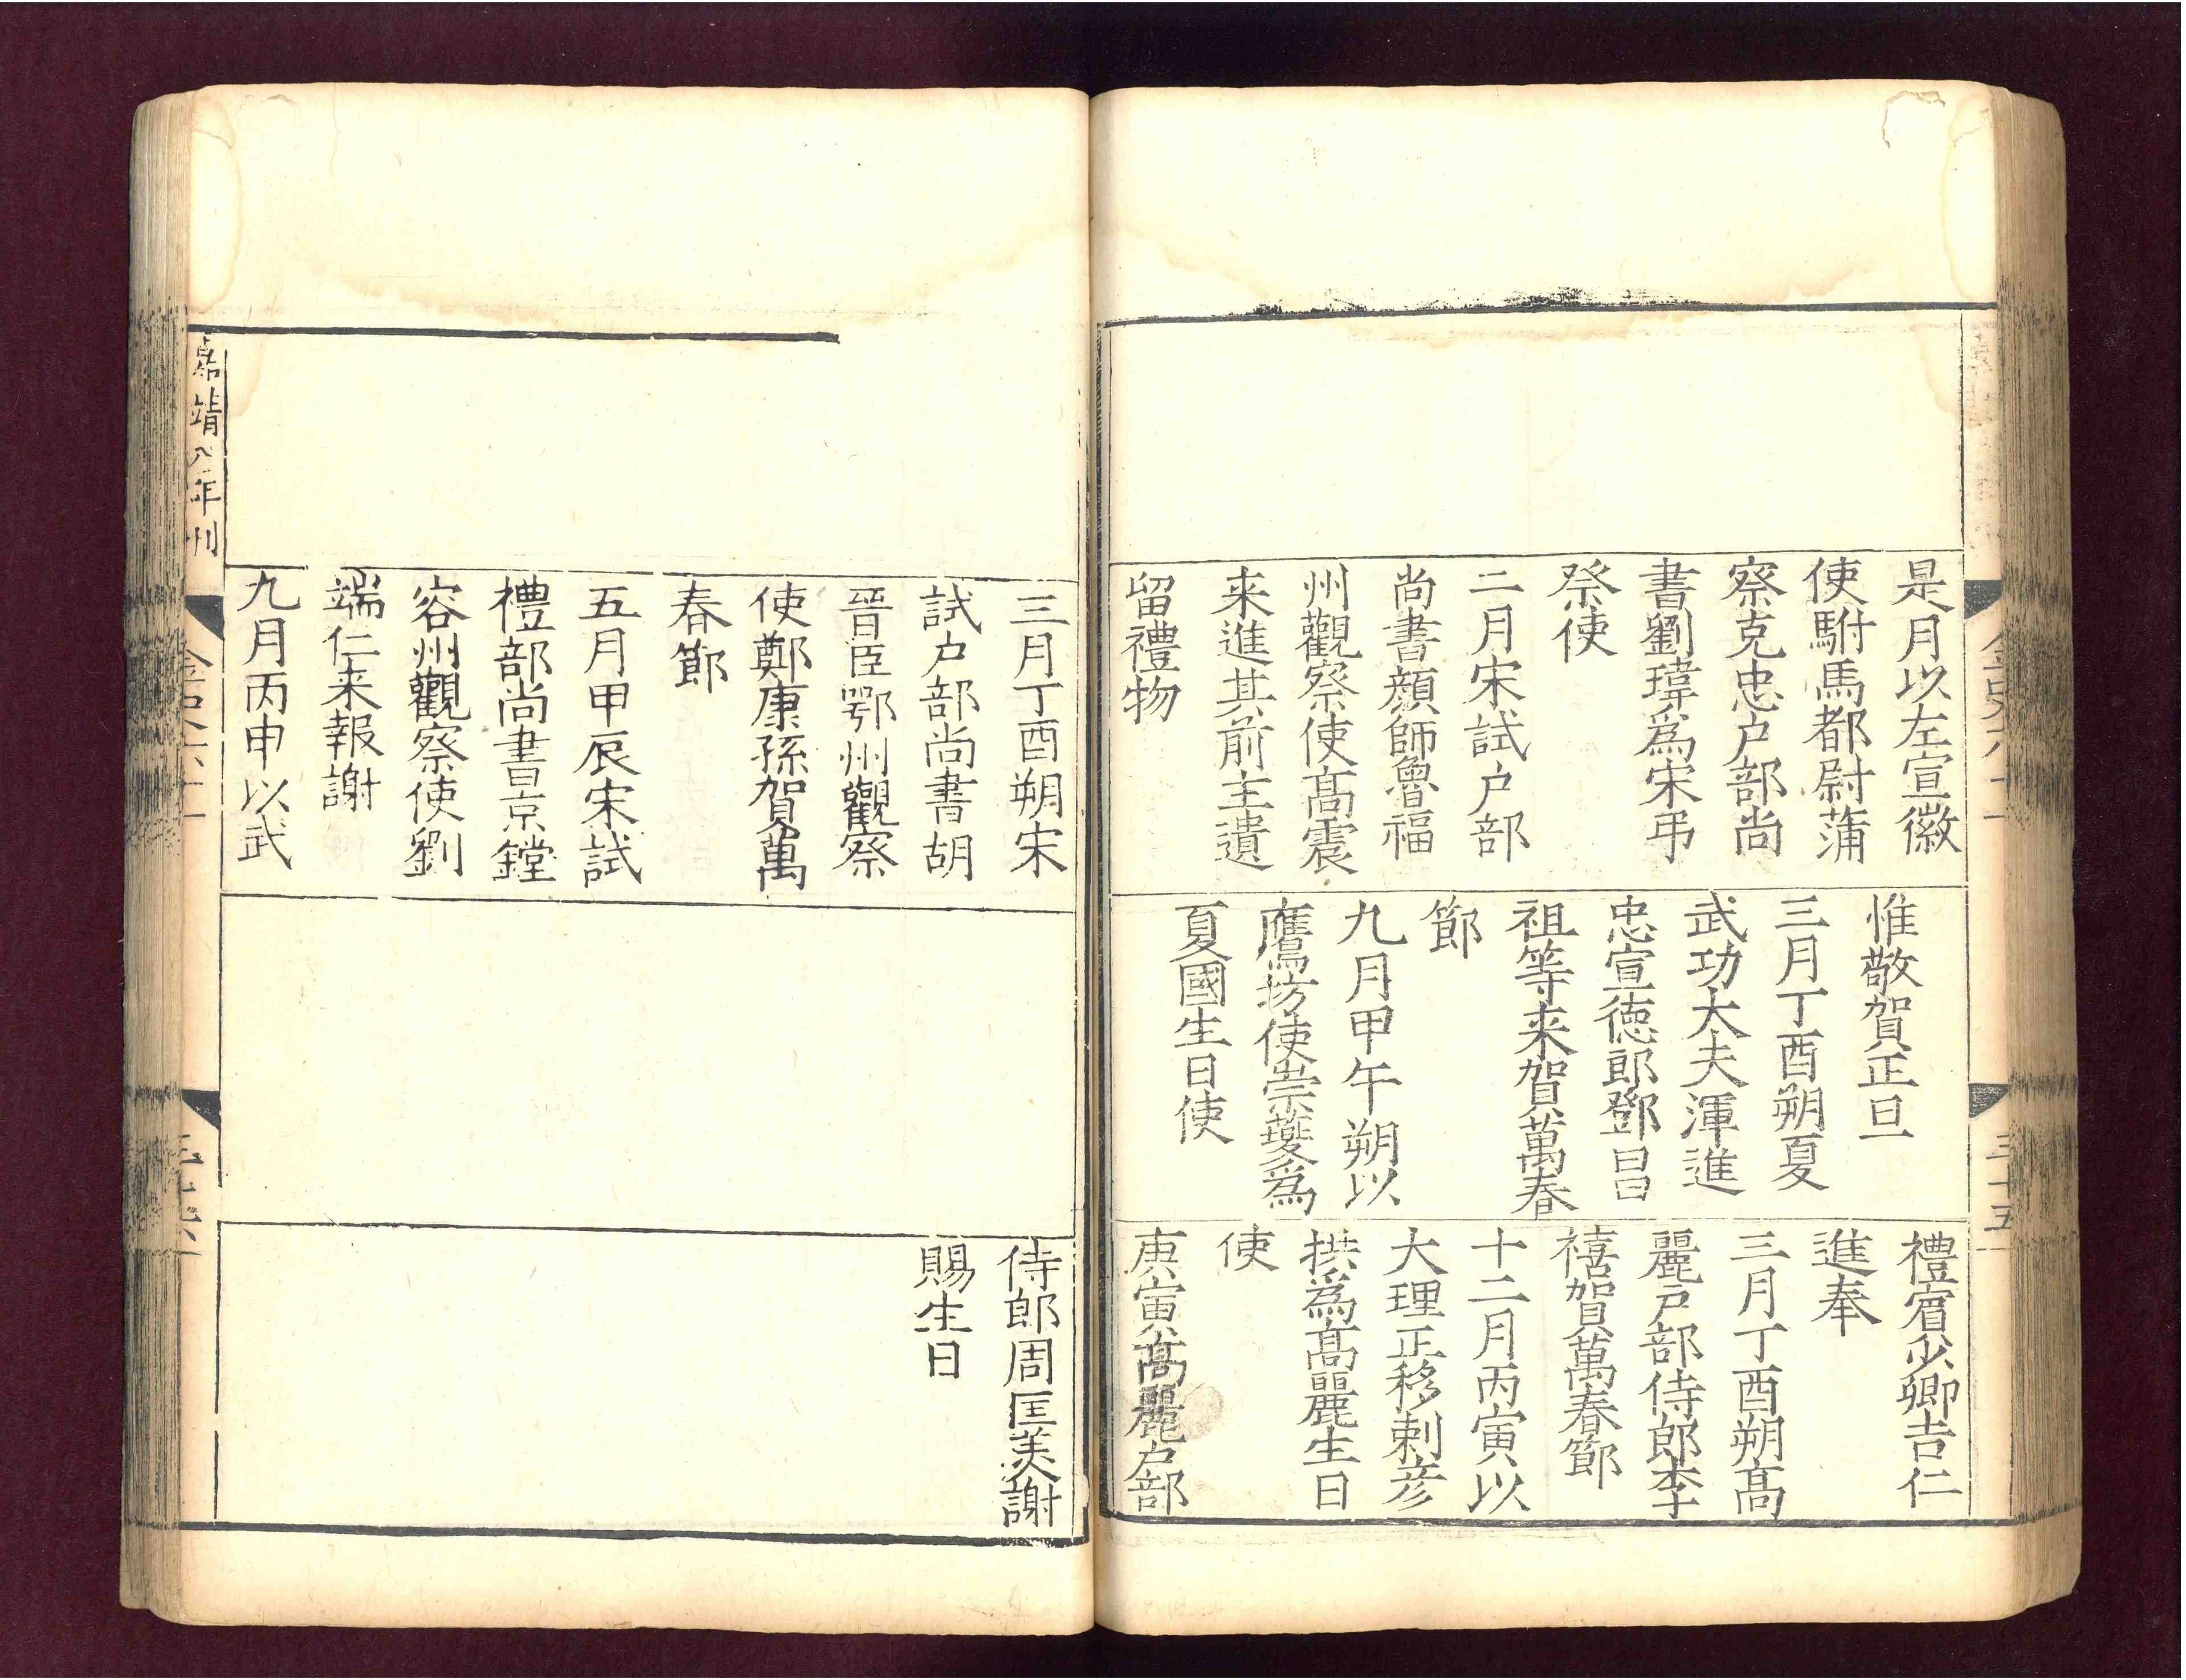 是月以左宣徽
使駙馬都尉蒲
察克忠户部尚
書劉瑋爲宋弔
祭使
二月宋試户部
尚書顔師魯福
州觀察使髙震
来進其前主遺
留禮物
惟敬賀正旦
三月丁酉朔夏
武功大夫渾進
忠宣徳郎鄧昌
祖等来賀萬春
節
九月甲午朔以
鷹坊使崇夔爲
夏國生日使
禮賓少卿吉仁
進奉
三月丁酉朔髙
麗戸部侍郎李
禧賀萬春節
十二月丙寅以
大理正移剌彦
拱爲髙麗生日
使
庚寅髙麗户部
三月丁酉朔宋
試户部尚書胡
晉臣鄂州觀察
使鄭康孫賀萬
春節
五月甲辰宋試
禮部尚書京鏜
容州觀察使劉
端仁来報謝
九月丙申以武
侍郎周匡美謝
賜生日
嘉靖八年刊